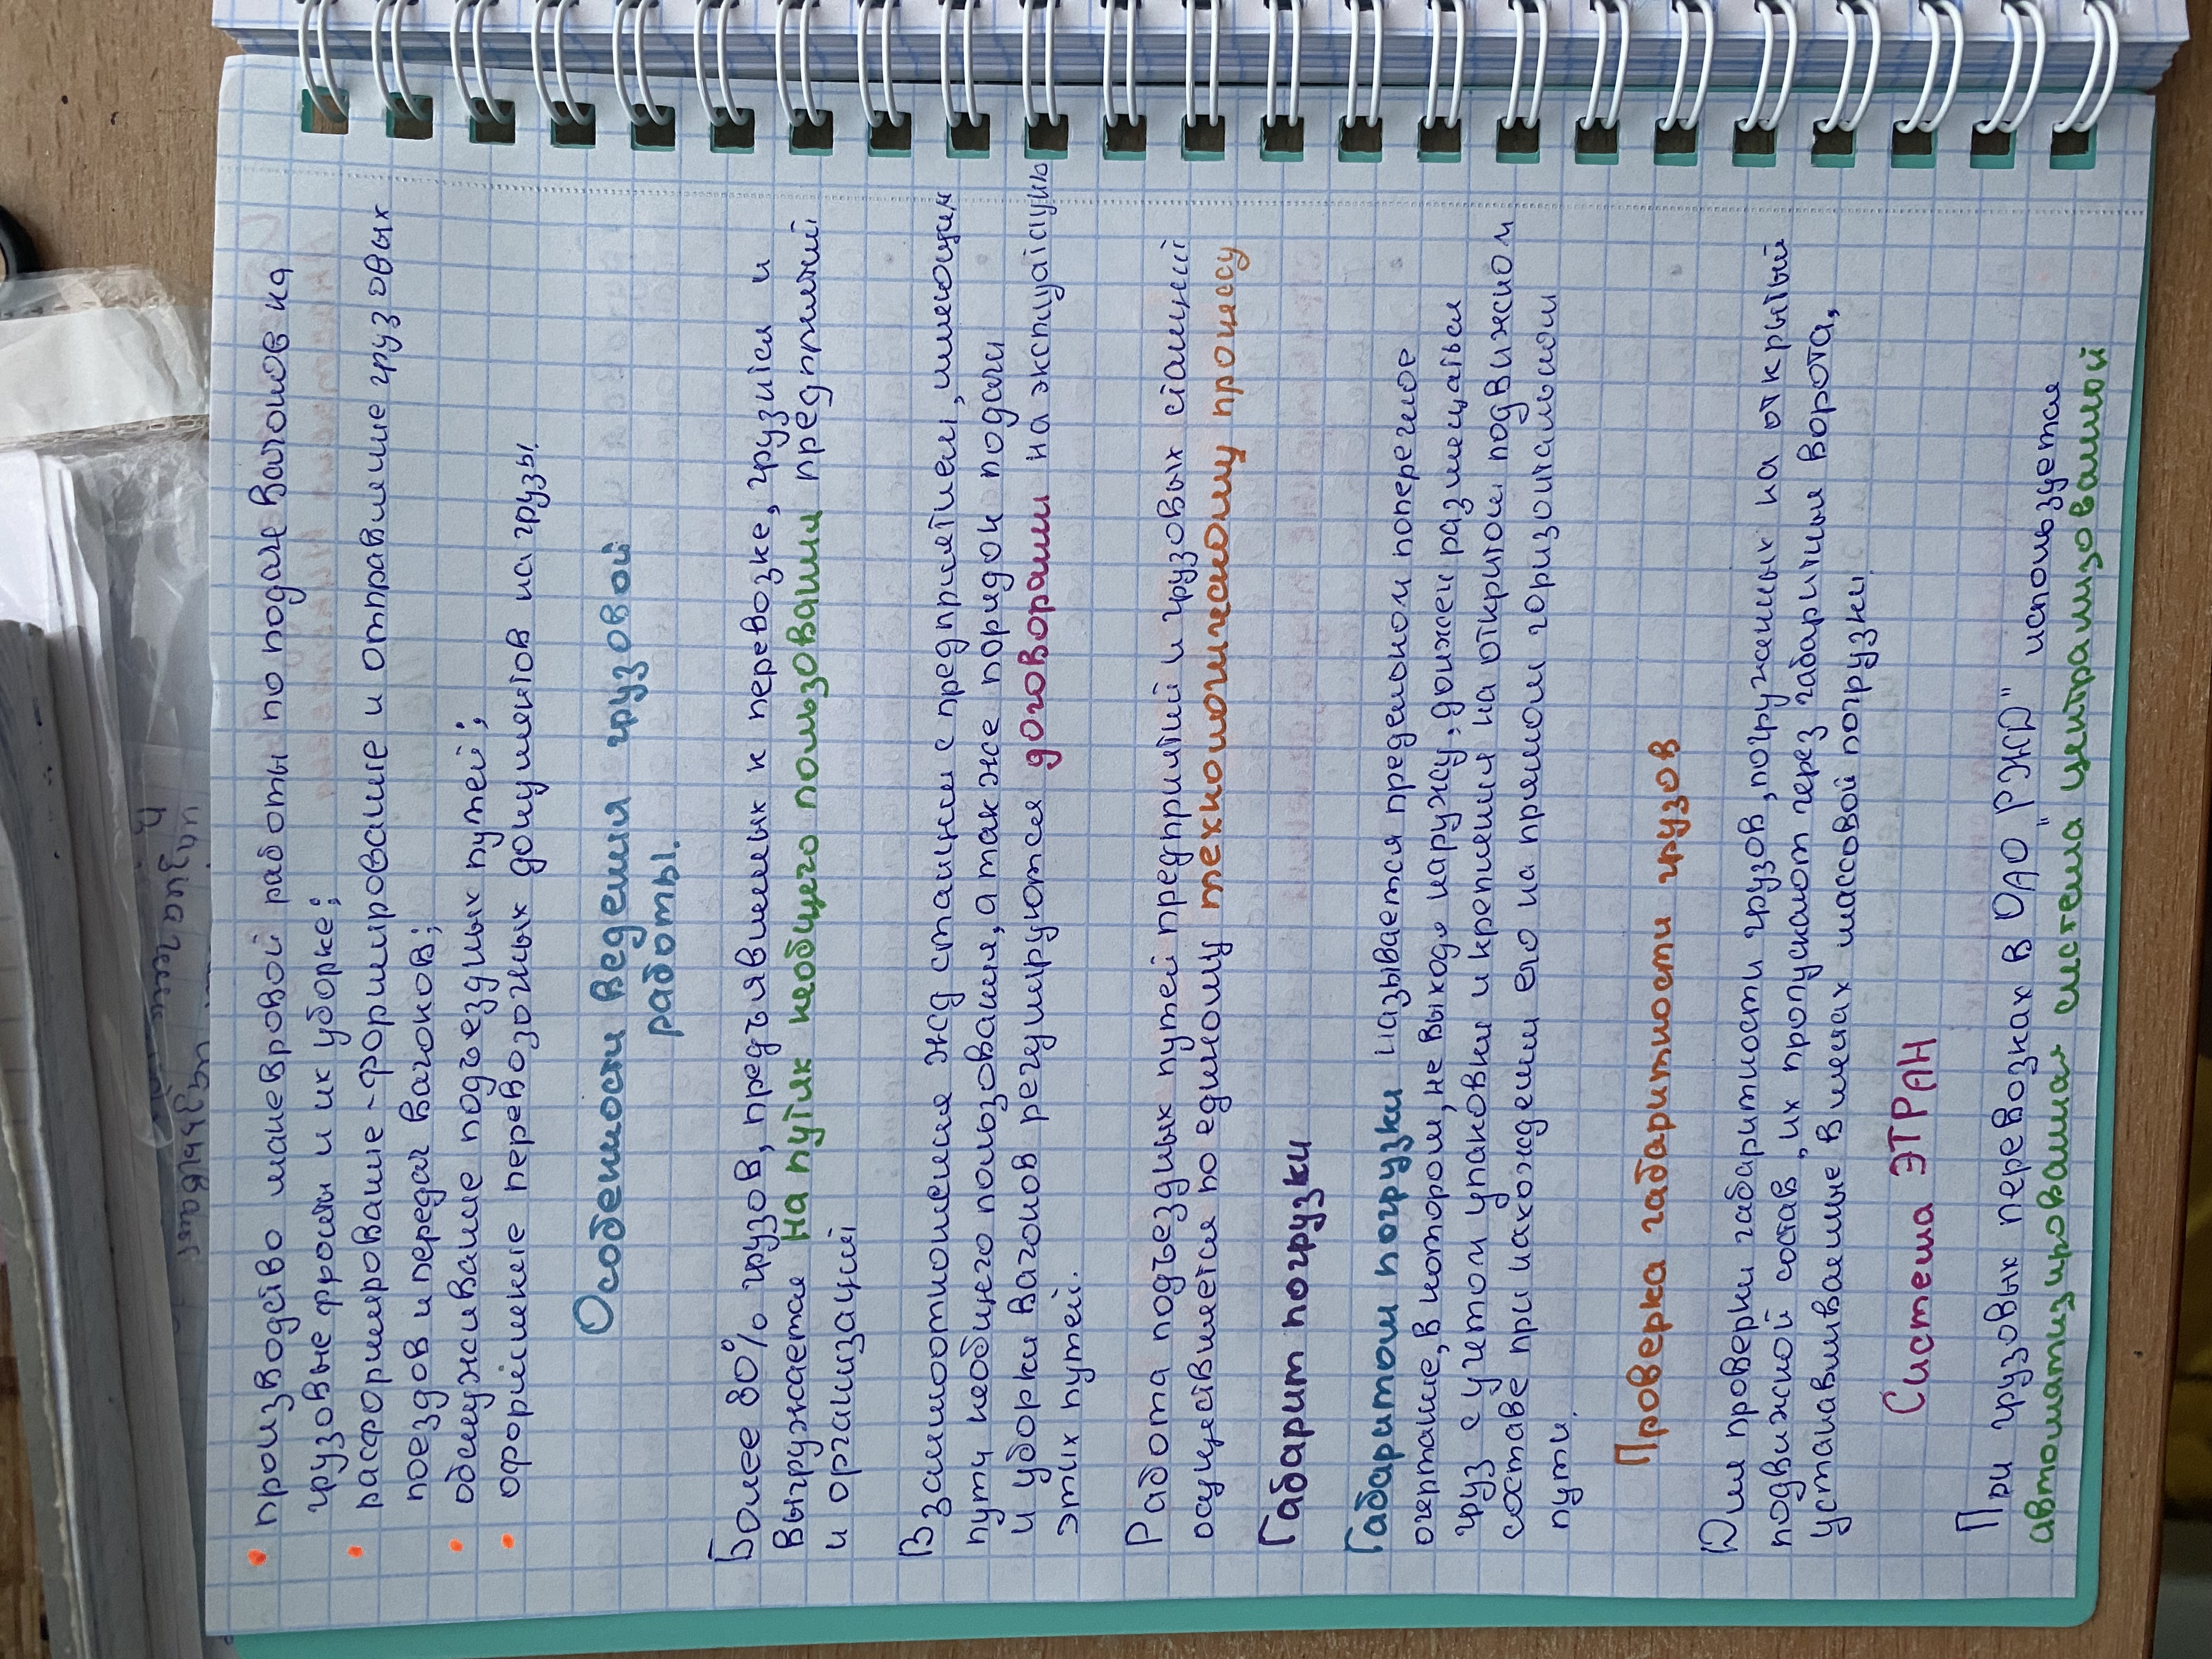 • производство маневровой работы по подаче вагонов на
грузовые фронты и их уборке;
• расформирование-формирование и отправление грузовых
поездов и передач вагонов;
• обслуживание подъездных путей;
• оформление перевозочных документов на грузы.
Особенности ведения грузовой
работы.
Более 80% грузов, предъявленных к перевозке, грузится и
выгружается на путях необщего пользования предприятий
и организаций
Взаимоотношения жд станции с предприятием, имеющим
пути необщего пользования, а также порядок подачи
и уборки вагонов регулируются договорами на эксплуатацию
этих путей.
Работа подъездных путей предприятий и грузовых станций
осуществляется по единому технологическому процессу
Габарит погрузки
Габаритом погрузки называется предельное поперечное
очертание, в котором, не выходя наружу, должен размещаться
груз с учетом упаковки и крепления на открытом подвижном
составе при нахождении его на прямом горизонтальном
пути.
Проверка габаритности грузов
Для проверки габаритности грузов, погруженных на открытый
подвижной состав, их пропускают через габаритные ворота,
устанавливаемые в местах массовой погрузки.
Система ЭТРАН
При грузовых перевозках в ОАО "РЖД" используется
автоматизированная система централизованной